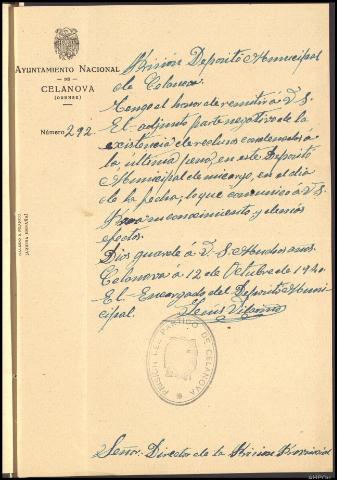 AYUNTAMIENTO NACIONAL
DE
CELANOVA
(ORENSE)
Número 292
Prision Deposito Municipal
de Celanova.
Tengo el honor de remitir a V. S.
El adjunto parte negativo de la
existencia de reclusos condenados a
la ultima pena, en este Deposito
Municipal de mi cargo, en el dia
de la fecha, lo que comunico a V. S.
Para su conocimiento y demás
efectos.
Dios guarde a V. S. Muchos anos.
Celanova a 12 de Octubre de 1940.
El Encargado del Deposito Muni-
cipal.
PRISION DEL PARTIDO DE CELANOVA
Señor Director de la Prision Provincial